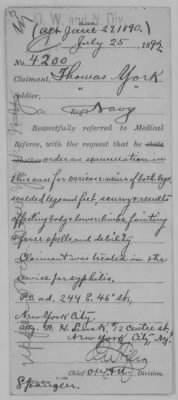 O. W. and N. Div.
(Act June 27, 1890.)
July 25, 1892
No. 4200
Claimant, Thomas York
Soldier,
Co. Reg't Navy
Respectfully referred to Medical
Referee, with the request that he state
whether order an examination in
this case for varicose veins of both legs,
scalded legs and feet, scurvy & results
affecting body & lower limbs, fainting
spells and debility
Claimant was treated in the
service for syphilis.
P.O. ad. 244 E. 46" St,
New York City.
Atty. 72 Centre St,
New York City, N.Y.
Chief Division.